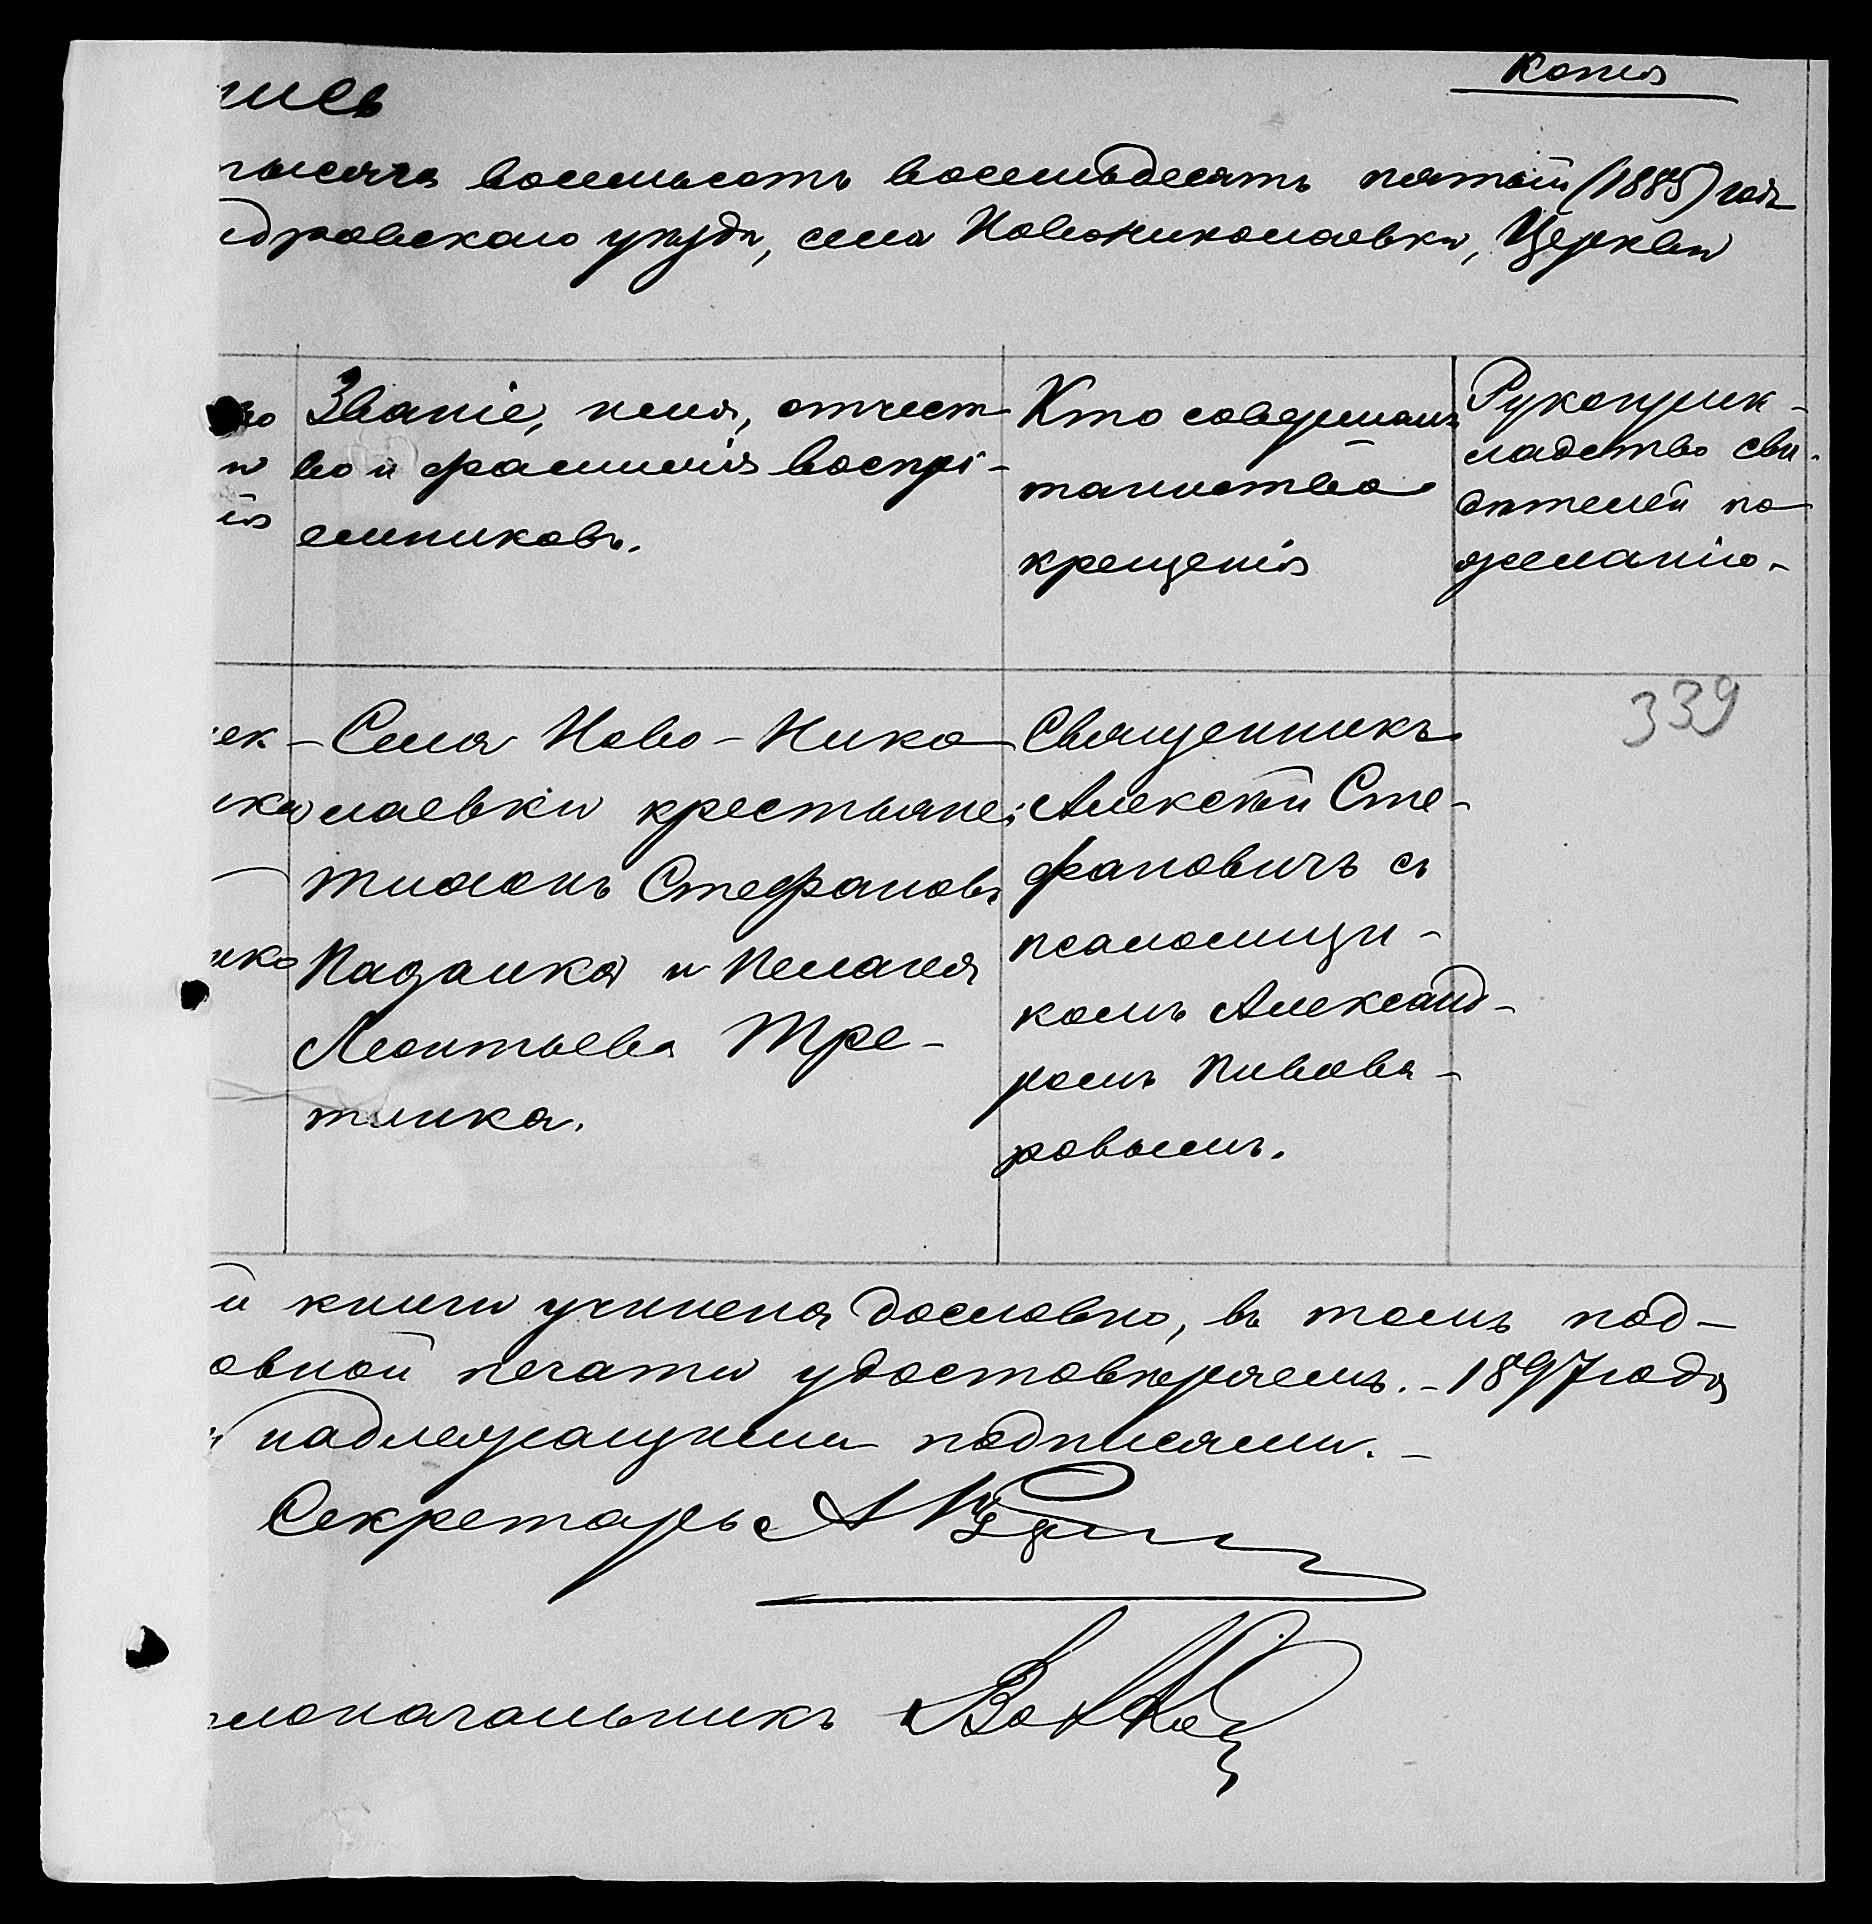 Копія
пись
тысяча восемьсотъ восемьдесятъ пятый (1885) годъ
дровскаго уѣзда, села Новониколаевки, Церкви
во
и
ія
Званіе, имя, отчест-
во и фамилія воспрі-
емниковъ.
Кто совершалъ
таинство
крещенія
Рукоприк-
ладство сви-
дѣтелей по
желанію.
339
ек-
ики
нко
Села Ново-Нико-
лаевки крестьяне:
Тимонъ Стефановъ
и Пелагея
Леонтьева Тре-
тинка.
Священникъ
Алексѣй Сте-
фановичъ съ
псаломщи-
комъ Александ-
ромъ Пивова-
ровымъ.
й книги учинена дословно, въ томъ под-
овной печати удостовѣряемъ.-1897 года
надлежащими подписями.-
Секретарь А
лоначальникъ